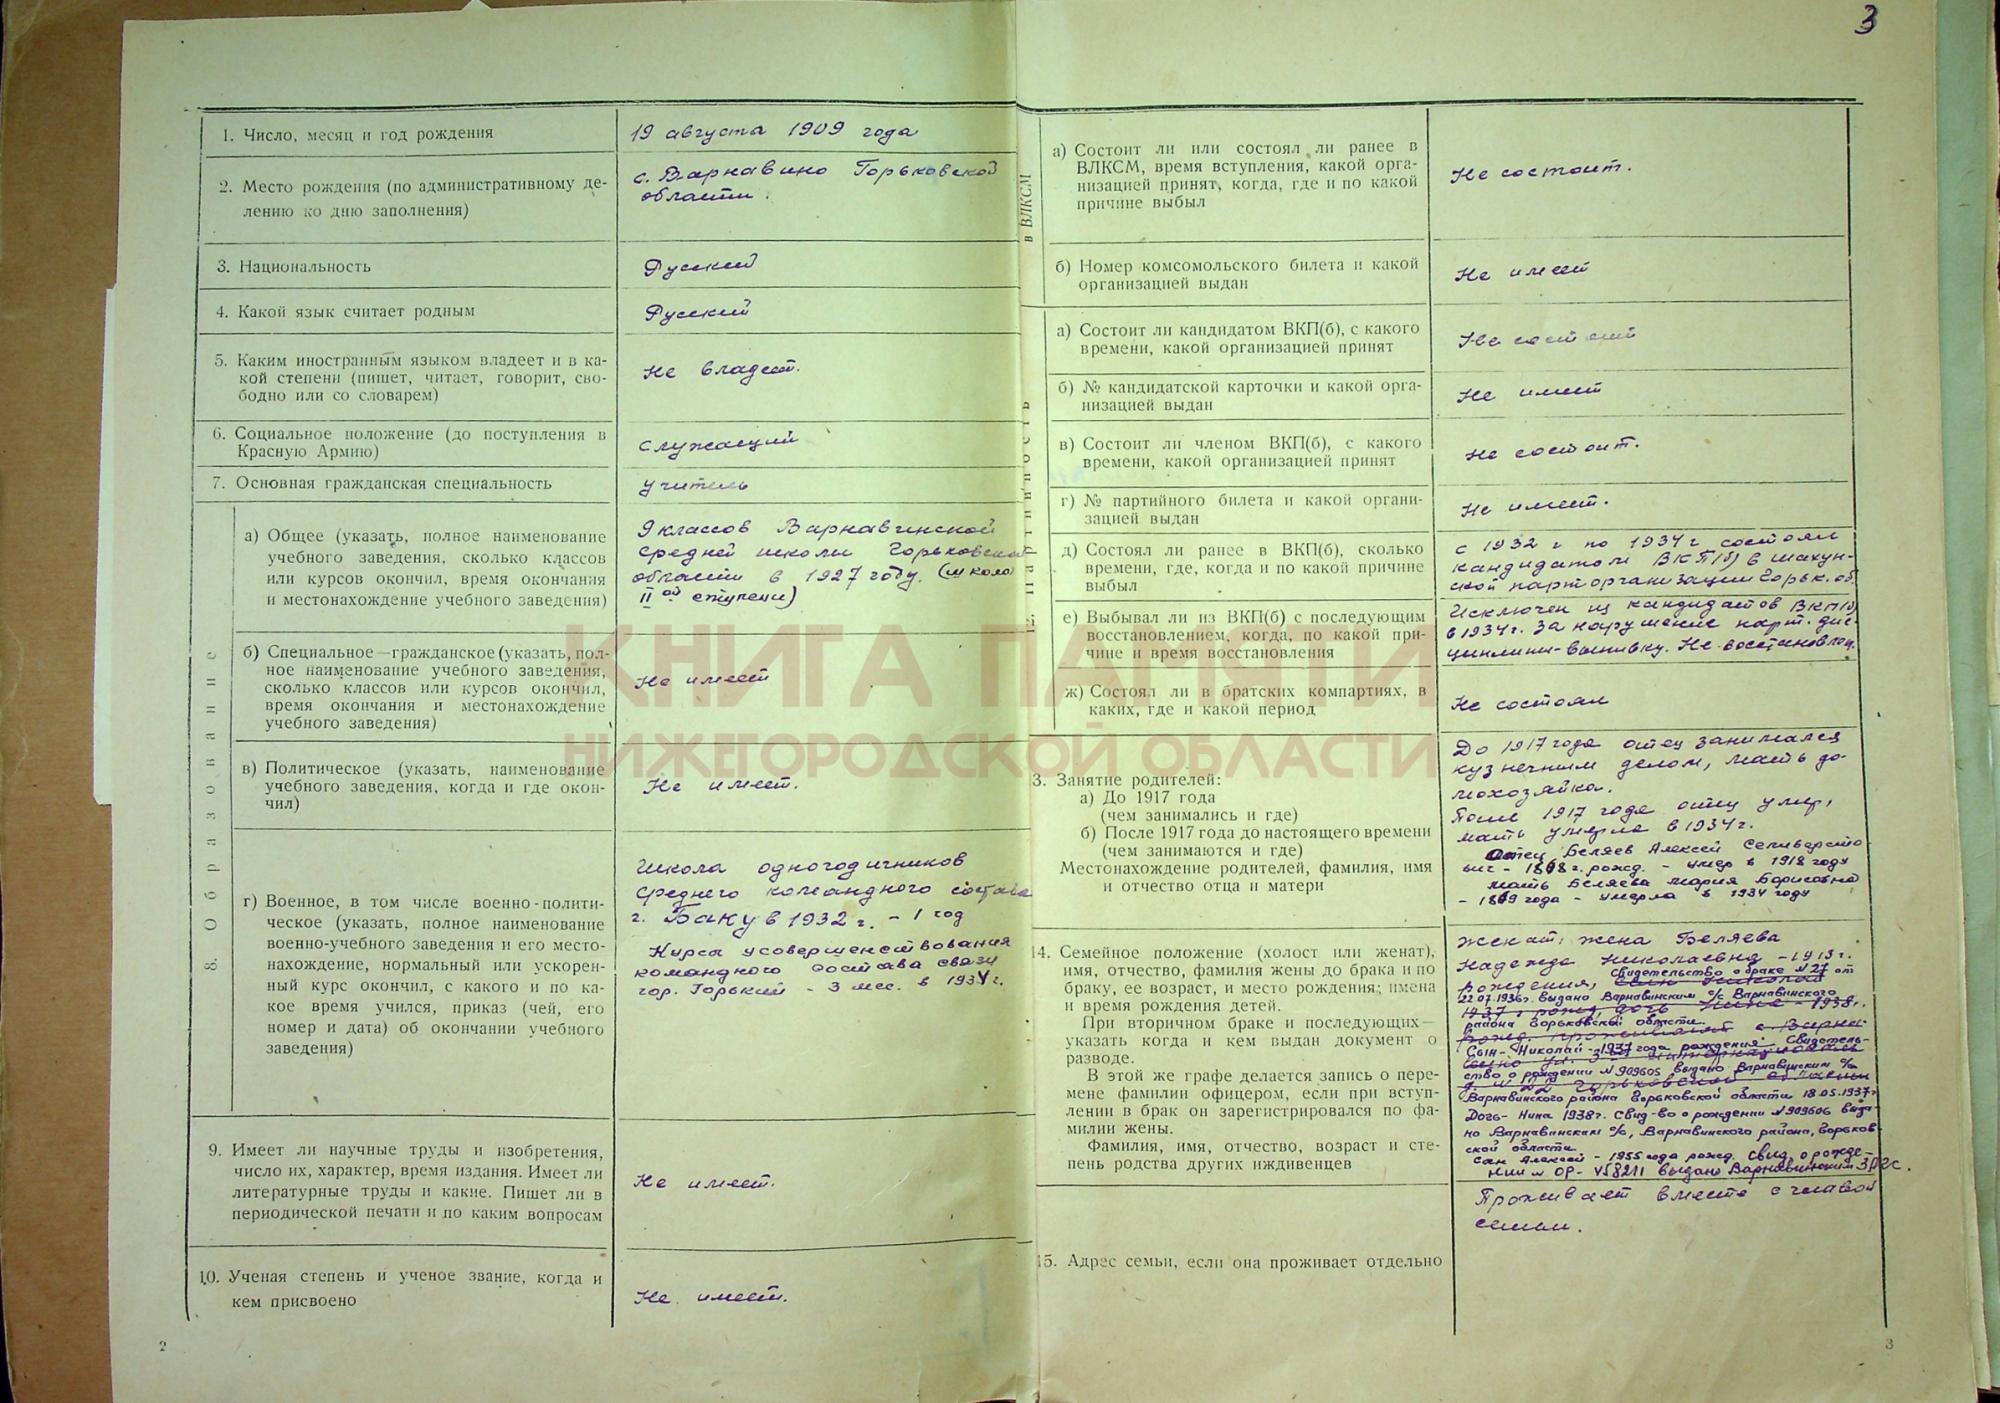 3
1. Число, месяц и год рождения
19 августа 1909 года
2. Место рождения (по административному де-
лению ко дню заполнения)
с. Варнавино Горьковской
области.
3. Национальность
Русский
4. Какой язык считает родным
Русский
5. Каким иностранным языком владеет и в ка-
кой степени (пишет, читает, говорит, сво-
бодно или со словарем)
Не владеет.
6. Социальное положение (до поступления в
Красную Армию)
служащий
7. Основная гражданская специальность
учитель
8. Образование
а) Общее (указать, полное наименование
учебного заведения, сколько классов
или курсов окончил, время окончания
и местонахождение учебного заведения)
9 классов Варнавинской
средней школы Горьковской
области в 1927 году. (школа
II ой ступени)
б) Специальное—гражданское (указать, пол-
ное наименование учебного заведения,
сколько классов или курсов окончил,
время окончания и местонахождение
учебного заведения)
Не имеет
в) Политическое (указать, наименование
учебного заведения, когда и где окон-
чил)
Не имеет.
г) Военное, в том числе военно-полити-
ческое (указать, полное наименование
военно-учебного заведения и его место-
нахождение, нормальный или ускорен-
ный курс окончил, с какого и по ка-
кое время учился, приказ (чей, его
номер и дата) об окончании учебного
заведения)
Школа одногодичников
среднего командного состава
г. Баку в 1932 г. - 1 год
Курсы усовершенствования
командного состава связи
гор. Горький - 3 мес. в 1934 г.
9. Имеет ли научные труды и изобретения,
число их, характер, время издания. Имеет ли
литературные труды и какие. Пишет ли в
периодической печати и по каким вопросам
Не имеет.
10. Ученая степень и ученое звание, когда и
кем присвоено
Не имеет.
2
в ВЛКСМ
а) Состоит ли или состоял ли ранее в
ВЛКСМ, время вступления, какой орга-
низацией принят, когда, где и по какой
причине выбыл
Не состоит.
б) Номер комсомольского билета и какой
организацией выдан
Не имеет
а) Состоит ли кандидатом ВКП(б), с какого
времени, какой организацией принят
Не состоит
б) № кандидатской карточки и какой орга-
низацией выдан
Не имеет
в) Состоит ли членом ВКП(б), с какого
времени, какой организацией принят
Не состоит.
г) № партийного билета и какой органи-
зацией выдан
Не имеет.
д) Состоял ли ранее в ВКП(б), сколько
времени, где, когда и по какой причине
выбыл
с 1932 г по 1934 г состоял
кандидатом ВКП(б) в шахун-
ской парторганизации Горьк. об.
е) Выбывал ли из ВКП(б) с последующим
восстановлением, когда, по какой при-
чине и время восстановления
Исключен из кандидатов ВКП(б)
в 1934 г. за нарушение парт. дис-
циплины-выпивку. Не восстановлен.
ж) Состоял ли в братских компартиях, в
каких, где и какой период
Не состоял
КНИГА ПАМЯТИ
НИЖЕГОРОДСКОЙ ОБЛАСТИ
3. Занятие родителей:
а) До 1917 года
(чем занимались и где)
б) После 1917 года до настоящего времени
(чем занимаются и где)
Местонахождение родителей, фамилия, имя
и отчество отца и матери
До 1917 года отец занимался
кузнечным делом, мать до-
мохозяйка.
После 1917 года отец умер,
мать умерла в 1934 г.
Отец Беляев Алексей Селиверсто-
вич - 1868 г. рожд. - умер в 1918 году
мать Беляева Мария Борисовна
- 1869 года - умерла в 1934 году
14. Семейное положение (холост или женат),
имя, отчество, фамилия жены до брака и по
браку, ее возраст, и место рождения; имена
и время рождения детей.
При вторичном браке и последующих—
указать когда и кем выдан документ о
разводе.
В этой же графе делается запись о пере-
мене фамилии офицером, если при вступ-
лении в брак он зарегистрировался по фа-
милии жены.
Фамилия, имя, отчество, возраст и сте-
пень родства других иждивенцев
Женат: жена Беляева
Надежда Николаевна - 1913 г.
рождения, Свидетельство о браке №27 от
22.07.1936г. выдано Варнавинским с/с Варнавинского
района Горьковской области.
Сын- Николай - 1937 года рождения. Свидетель-
ство о рождении №909605 выдано Варнавинским с/с
Варнавинского района Горьковской области 18.05.1937г
Дочь- Нина 1938г. Свид-во о рождении №909606 выда-
но Варнавинским с/с, Варнавинского района, Горьков-
ской области.
Сын Алексей - 1955 года рожд. Свид. о рожде-
нии № 58211 выдано Варнавинским ЗАГС.
15. Адрес семьи, если она проживает отдельно
Проживает вместе с главой
семьи.
3